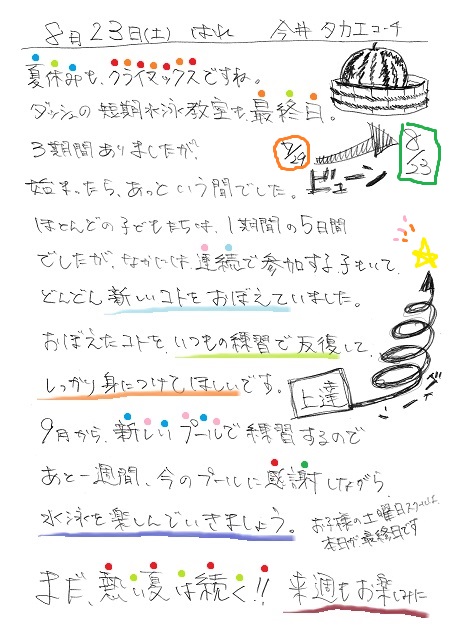 8月23日(土) はれ 今井タカエコーチ
夏休みも、クライマックスですね。
ダッシュの短期水泳教室も、最終日。
3期間ありましたが、
7/29
8/23
始まったら、あっという間でした。
ビューン
ほとんどの子どもたちは、1期間の5日間
でしたが、なかには、連続で参加する子もいて、
どんどん新しいコトをおぼえていました。
おぼえたコトを、いつもの練習で反復して、
しっかり身につけてほしいです。
上達
9月から、新しいプールで練習するので
あと一週間、今のプールに感謝しながら
水泳を楽しんでいきましょう。
お子様の土曜日スクールは、
本日が、最終日です
まだ、熱い夏は続く!!
来週もお楽しみに